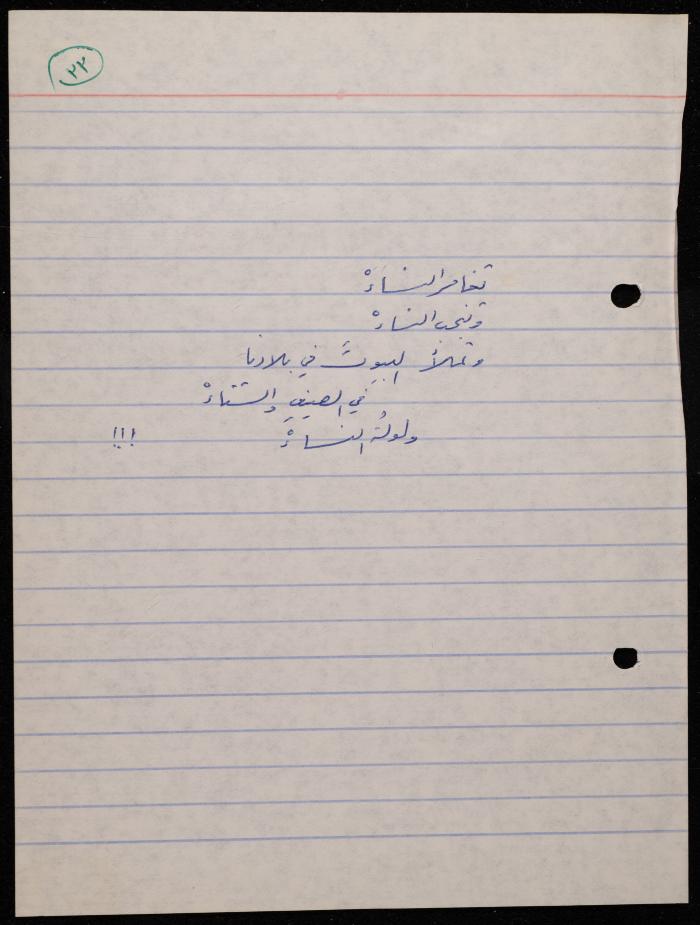 ٢٢
تغامر النساءْ
وتنجب النساءْ
وتملأُ البيوتَ في بلادنا
في الصيفِ والشتاءْ
ولولةُ النساءْ !!!